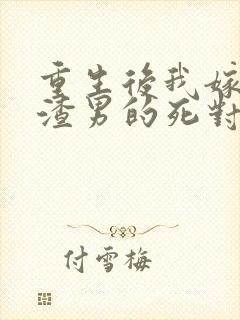 重生後我嫁
渣男的死對
付雪梅